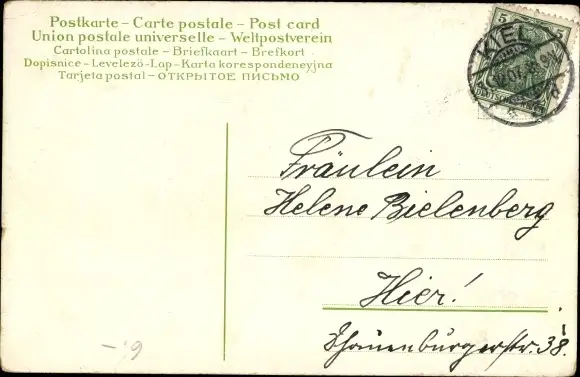 Postkarte – Carte postale – Post card
Union postale universelle – Weltpostverein
Cartolina postale – Briefkaart – Brefkort
Dopisnice – Levelező-Lap – Karta korespondeneyjna
Tarjeta postal – ОТКРЫТОЕ ПИСЬМО
5 5
KIEL
Fräulein
Helene Bielenberg
Hier!
Schauenburgerstr. 38.
6.–